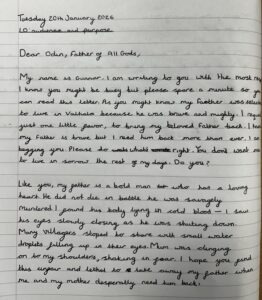 Tuesday 20th January 2026
LO audience and purpose
Dear Odin, Father of All Gods,
My name is Gunnar. I am writing to you with the most
I know you might be busy but please spare a minute so you
can read this letter. As you might know my Father was
to live in Valhalla because he was brave and mighty. I
just one little favor, to bring my beloved Father back. I
my Father is brave but I need him back more than ever. I
begging you Please do whats right. You don't want me
to live in sorrow the rest of my days. Do you?
Like you, my father is a bold man who has a loving
heart. He did not die in battle he was savagely
murdered. I found his body lying in cold blood - I saw
his eyes slowly closing as he was shutting down.
Many Villages stoped to share with small water
droplets filling up in their eyes. Mum was clinging
on to my shoulders, shaking in fear. I hope you find
this unfair and lethal to take away my father when
me and my mother desperatly need him back.